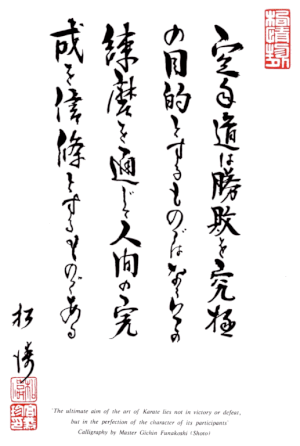 空手道は勝敗を究極
の目的とするものではなくその
練磨を通じて人間の完
成を信條とするものである
松濤
'The ultimate aim of the art of Karate lies not in victory or defeat,
but in the perfection of the character of its participants'
Calligraphy by Master Gichin Funakoshi (Shoto)